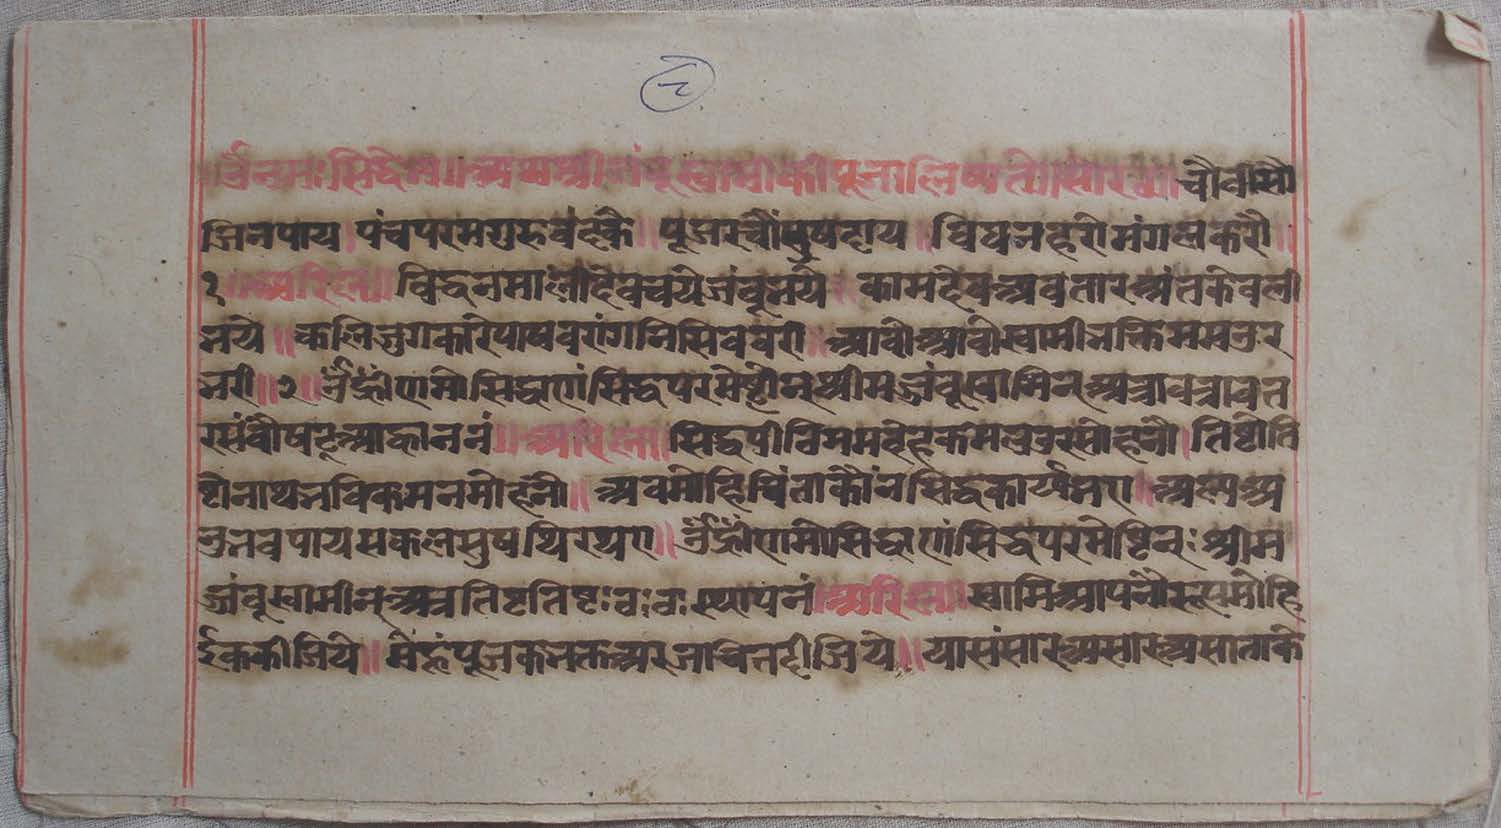 ॐनमः सिद्धेभ्यः॥ अथ श्री जंबूस्वामी की पूजा लिष्यते॥ सोरठा॥ चौवीसौ
जिनपाय॥ पंचपरमगुरुवंदकै॥ पूजरचौं सुषदाय॥ विघनहरो मंगलकरौ॥
१॥ अरिल॥ विद्युनमालीदेवचये जंबूभये॥ कामदेवअवतारअंतकेवली
भये॥ कलिजुगकारेपाषवरांगनिसिववरी॥ आवोआवोस्वामीभक्तिममउर
भरी॥२॥ ॐह्रींणमोसिद्धाणंसिद्धपरमेष्टीनश्रीमज्जंबूस्वामिन्अत्रावत्रावत
रसंवौषट्आह्वाननं॥ अरिल॥ सिद्धपीविममवंदहकमलउरसोहनौ। तिष्टोति
ष्टोनाथभविकमनमोहनौ॥ अवमोहिचिंताकौंनसिद्धकार्यभरा॥ अद्यअ
नुभवपायसकलसुषथिरथरा॥ ॐह्रींणमोसिद्धाणंसिद्धपरमेष्टिनः श्रीम
ज्जंबूस्वामीन्अत्रतिष्टतिष्टः ठः ठः स्थापनं॥ अरिल॥ स्वामिआपनौरूपमोहि
ईककीजिये॥ मैंहूंपूजकभक्तअरजचितदीजिये॥ यासंसारअसारअसाताके